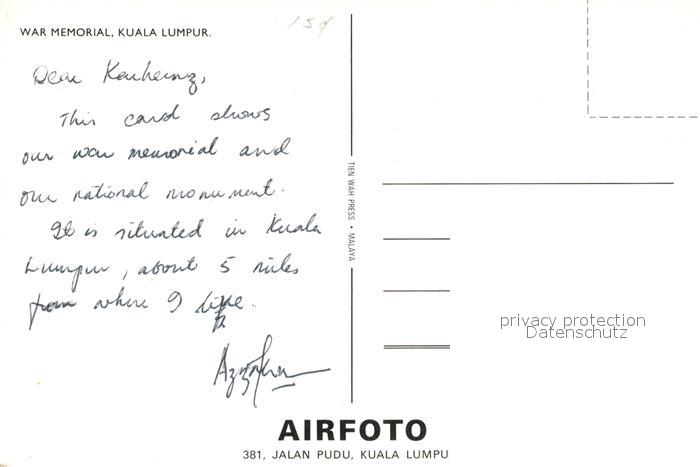 WAR MEMORIAL, KUALA LUMPUR.
15¢
Dear Karlheinz,
This card shows
our war memorial and
our national monument.
It is situated in Kuala
Lumpur, about 5 miles
from where I live.
TIEN WAH PRESS • MALAYA
privacy protection
Datenschutz
AIRFOTO
381, JALAN PUDU, KUALA LUMPU